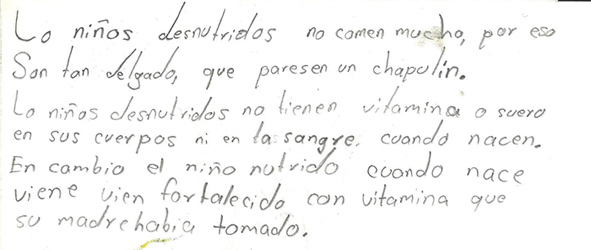 Lo niños desnutridos no comen mucho, por eso
Son tan delgado, que paresen un chapulín.
Lo niños desnutridos no tienen vitamina o suero
en sus cuerpos ni en la sangre. cuando nacen.
En cambio el niño nutrido cuando nace
viene vien fortalecido con vitamina que
su madre habia tomado.